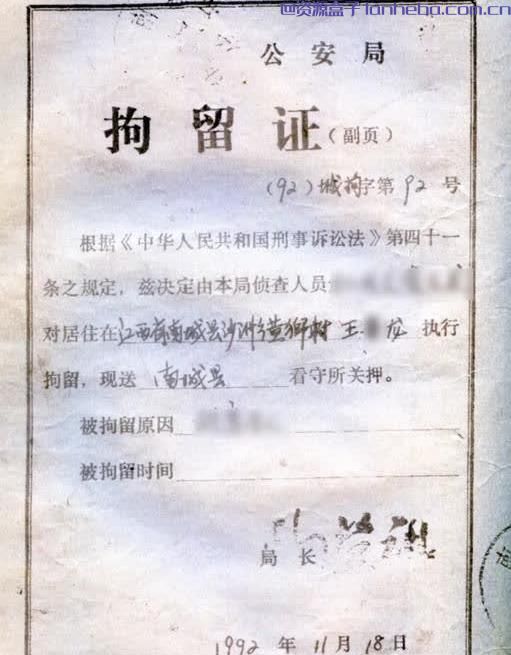 @资源盒子lanheba.com.cn
公安局
拘留证（副页）
（92）城拘字第92号
根据《中华人民共和国刑事诉讼法》第四十一
条之规定，兹决定由本局侦查人员
对居住在江西省南城县沙洲 黄狮村 王 龙 执行
拘留，现送 南城县 看守所关押。
被拘留原因
被拘留时间
局长
1992年11月18日
南